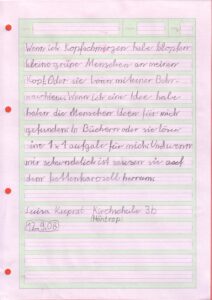 Wenn ich Kopfschmerzen habe klopfen
kleine grüne Menschen an meinen
Kopf. Oder sie boren mit einer Bohr-
maschiene. Wenn ich eine Idee habe
haben die Menschen Ideen für mich
gefunden. In Büchern oder sie lösen
eine 1x1 aufgabe für mich. Und wenn
mir schwindelich ist sausen sie auf
dem kettenkarosell herrum.
Luisa Kirchschule 3b